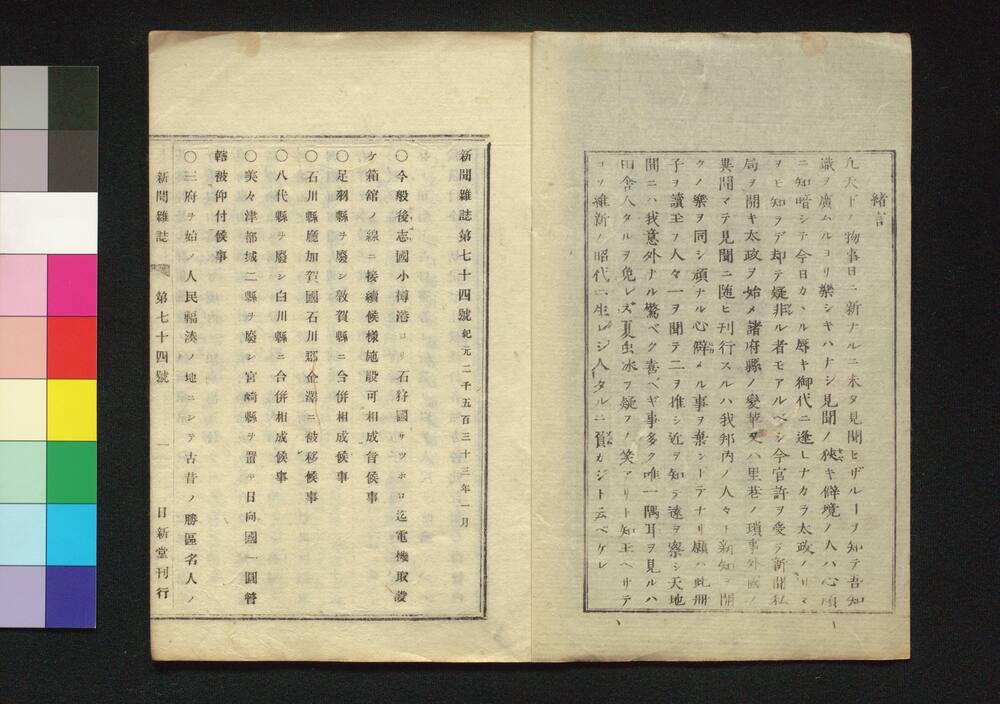 緒言
凡天下ノ物事日ニ新ナルニ未タ見聞セザルヿヲ知テ吾知
識ヲ廣ムルヨリ樂シキハナシ見聞ノ狹キ僻境ノ人ハ心頑
ニ知暗シテ今日カヽル辱キ御代ニ逢ヒナカラ太政ノリマ
ヲモ知ラデ却テ疑非ル者モアルベシ今官許ヲ受テ新聞私
局ヲ開キ太政ヲ始メ諸府縣ノ變革又ハ里巷ノ瑣事外國ノ
異聞マテ見聞ニ随ヒ刊行スルハ我邦内ノ人々ト新知ヲ開
クノ樂ヲ同シ頑ナル心僻メル事ヲ棄ントテナリ願ハ此冊
子ヲ讀玉フ人々一ヲ聞テ二ヲ推シ近ヲ知テ遠ヲ察シ天地
間ニハ我意外ナル驚ベク喜ベキ事多ク唯一隅耳ヲ見ルハ
田舎人タルヲ免レズ夏虫氷ヲ疑フノ笑アリト知玉ヘサテ
コソ維新ノ昭代ニ生レシ人タルニ負カジト云ベケレ
新聞雜誌第七十四號紀元二千五百三十三年一月
〇今般後志國小樽港ヨリ石狩國サツホロ迄電機取設
ケ箱舘ノ線ニ接續候様施設可相成旨候事
〇足羽縣ヲ廢シ敦賀縣ニ合併相成候事
〇石川縣廳加賀國石川郡金澤ニ被移候事
〇八代縣ヲ廢シ白川縣ニ合併相成候事
〇美々津都城二縣ヲ廢シ宮崎縣ヲ置キ日向國一圓管
轄被仰付候事
〇三府ヲ始ノ人民輻湊ノ地ニシテ古昔ノ勝區名人ノ
新聞雜誌 第七十四號 一 日新堂刊行